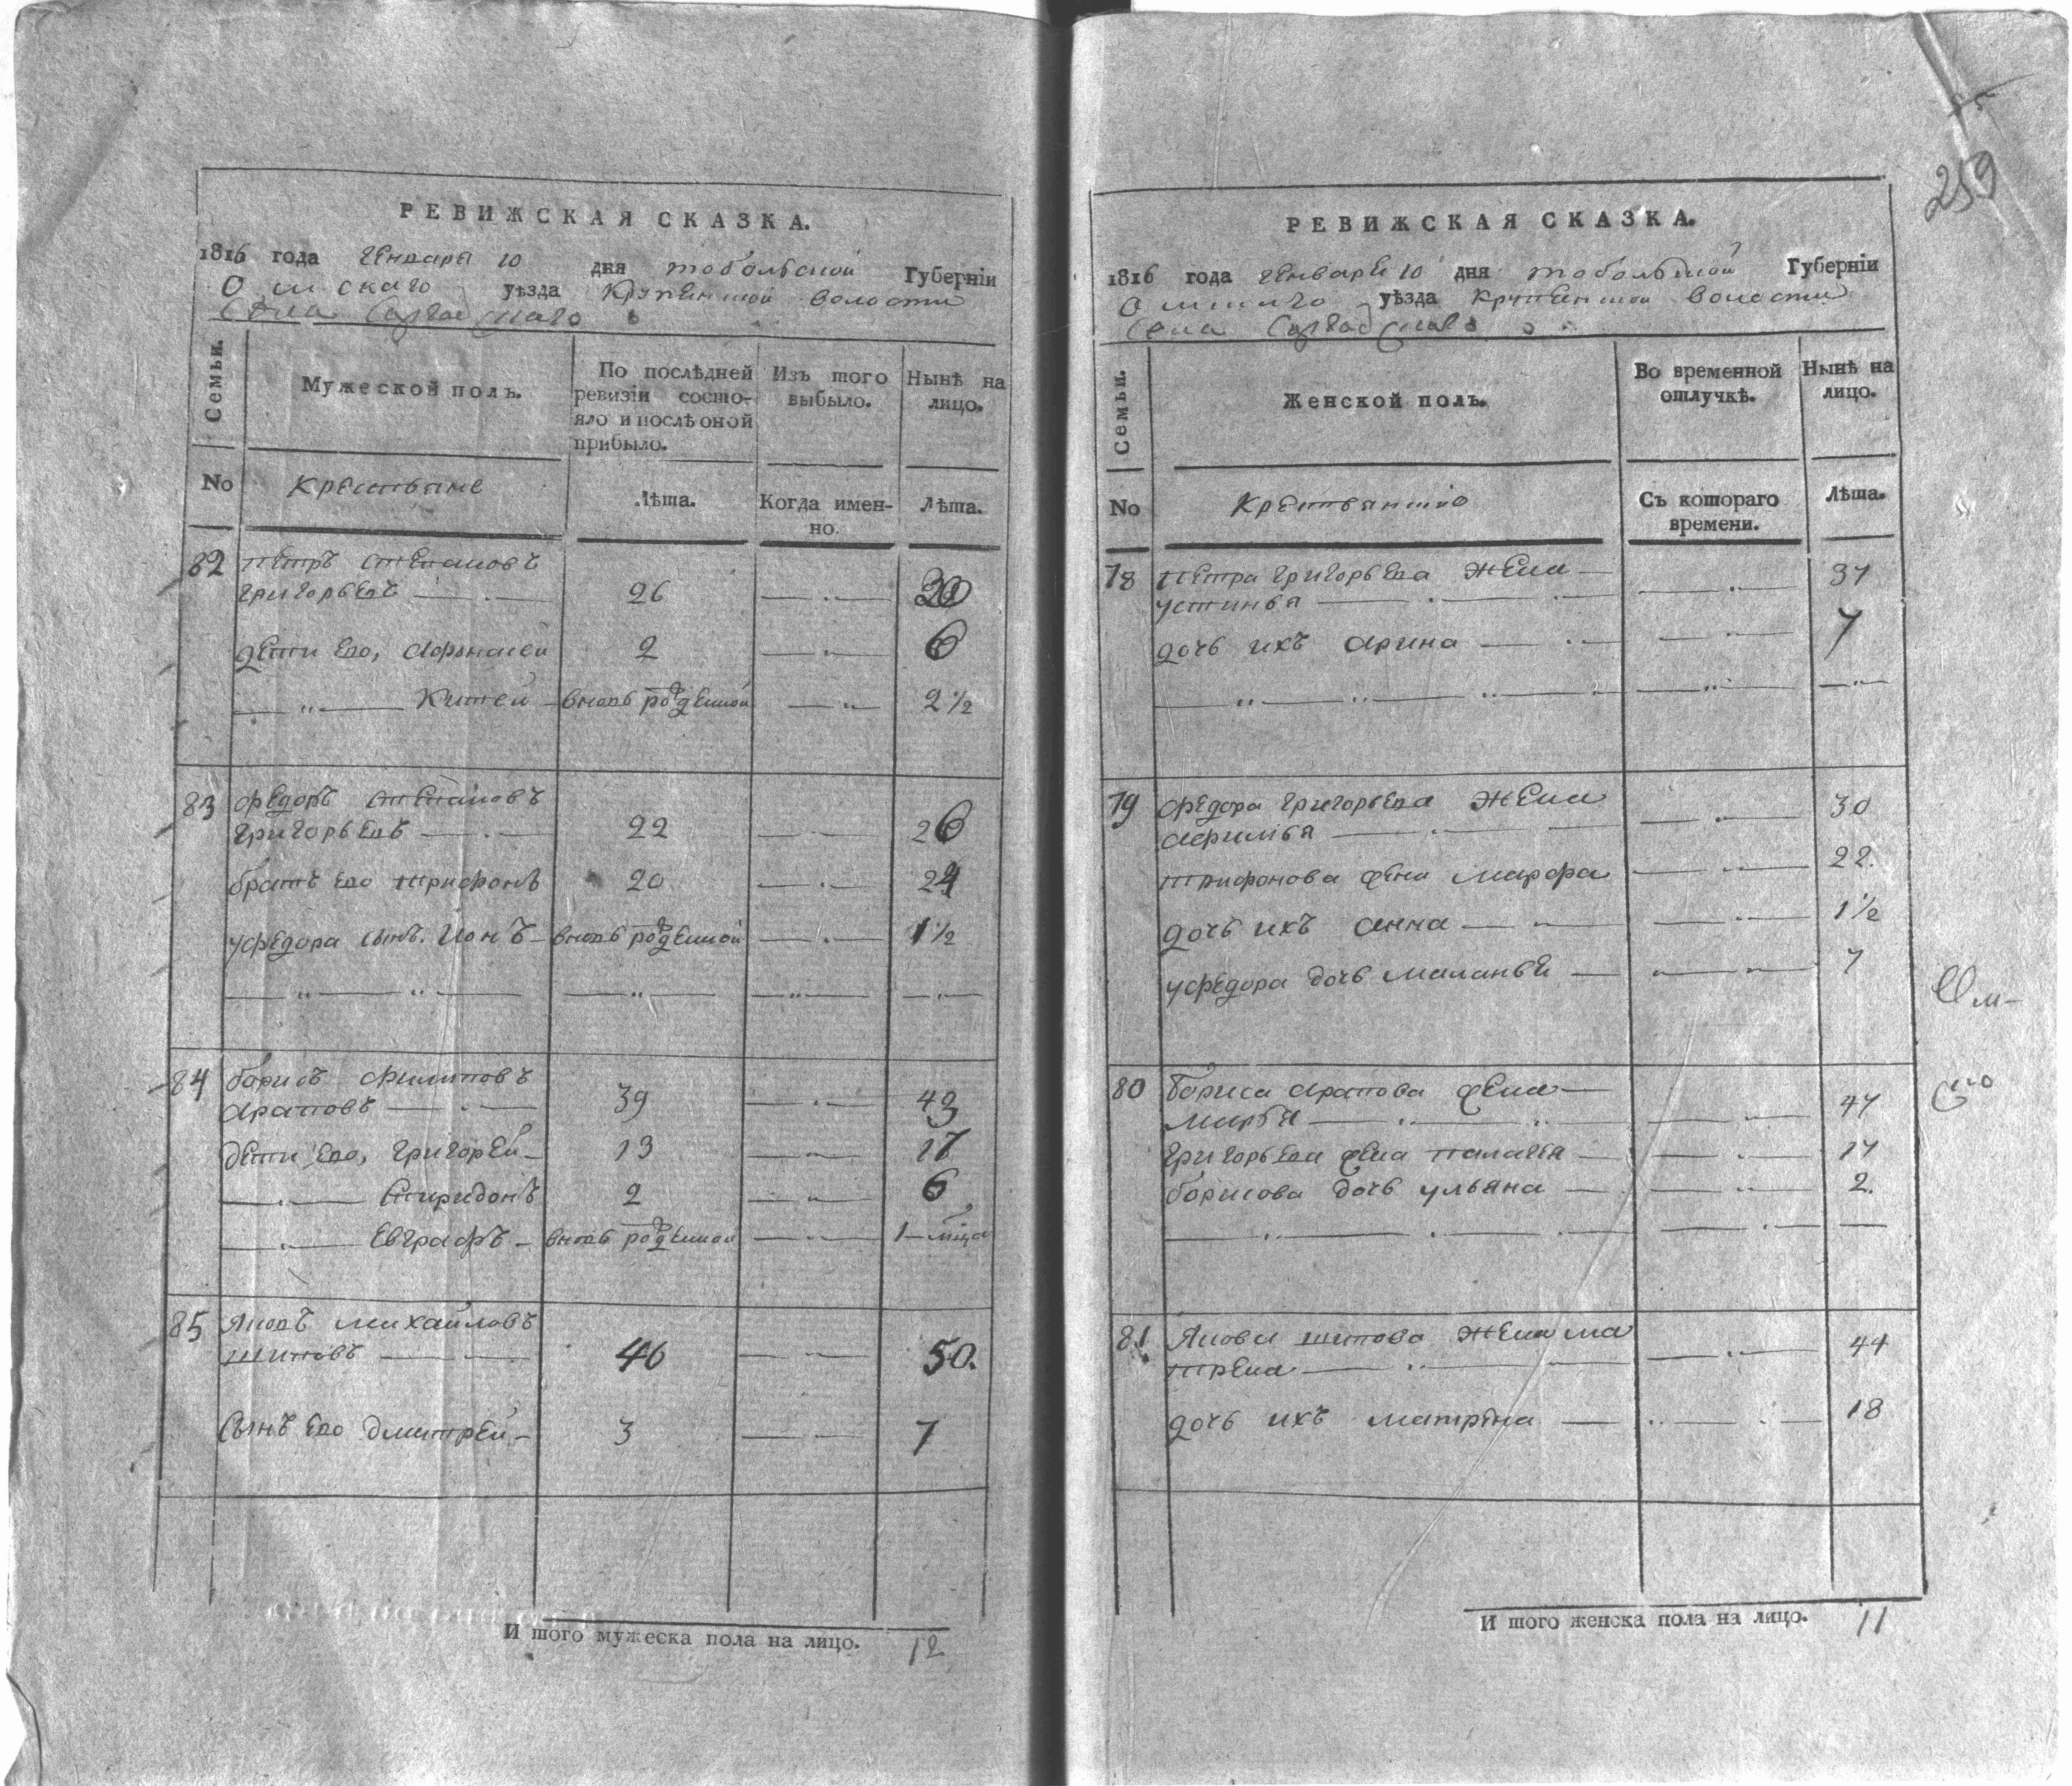 259
РЕВИЖСКАЯ СКАЗКА.
1816 года Генваря 10 дня тобольской Губерніи
Омскаго уѣзда Крупенской волости
Села
Семьи.
Мужеской полъ.
По послѣдней ревизіи состо-
яло и послѣ оной прибыло.
Изъ того выбыло.
Нынѣ на лицо.
No
Крестьяне
Лѣта.
Когда имен-
но.
Лѣта.
82 петръ степановъ
григорьевъ 26
дети ево, Афонасей 2 6
Китей вновь рожденной 2 1/2
83 федоръ степановъ
григорьевъ 22 26
братъ ево трифонъ 20 24
у федора сынъ Ионъ вновь рожденной 1 1/2
84 борисъ филиповъ
Араповъ 39 43
дети ево, григорей 13 17
Спиридонъ 2 6
Евграфъ вновь рожденной 1 мѣца
85 Яковъ михайловъ
шиповъ 46 50.
Сынъ ево дмитрей 3 7
И того мужеска пола на лицо. 12
РЕВИЖСКАЯ СКАЗКА.
1816 года генваря 10 дня тобольской Губерніи
Омскаго уѣзда Крупенской волости
Села
Семьи.
Женской полъ.
Во временной отлучкѣ.
Нынѣ на лицо.
No
Крестьянкіѣ
Съ котораго времени.
Лѣта.
78 петра григорьева жена
устинья 37
дочь ихъ арина 7
79 федора григорьева жена
афимья 30
трифонова жена марфа 22.
дочь ихъ анна 1 1/2
у федора дочь маланья 7
80 бориса арапова жена
марья 47
григорьева жена палагея 17
борисова дочь ульяна 2.
81 Якова шипова жена ма
трена 44
дочь ихъ матрена 18
И того женска пола на лицо. 11